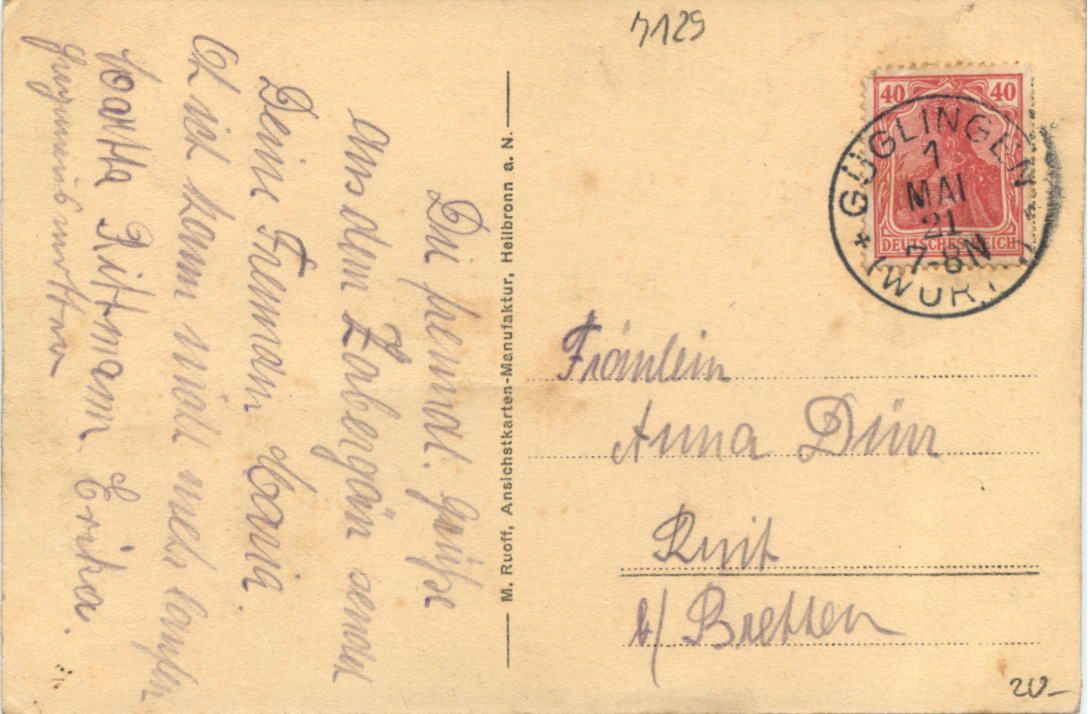 7129
40 40
DEUTSCHES REICH
GÜGLINGEN
1
MAI
21
7-8N
(WÜRTT.)
Fräulein
Anna Dürr
Ruit
b/ Bretten
M. Ruoff, Ansichtskarten-Manufaktur, Heilbronn a. N.
Die Grüße
aus dem Zabergäu sendet
Deine Freundin Maria.
Ich kann nicht mehr laufen
Martha Rittmann Erika.
20-